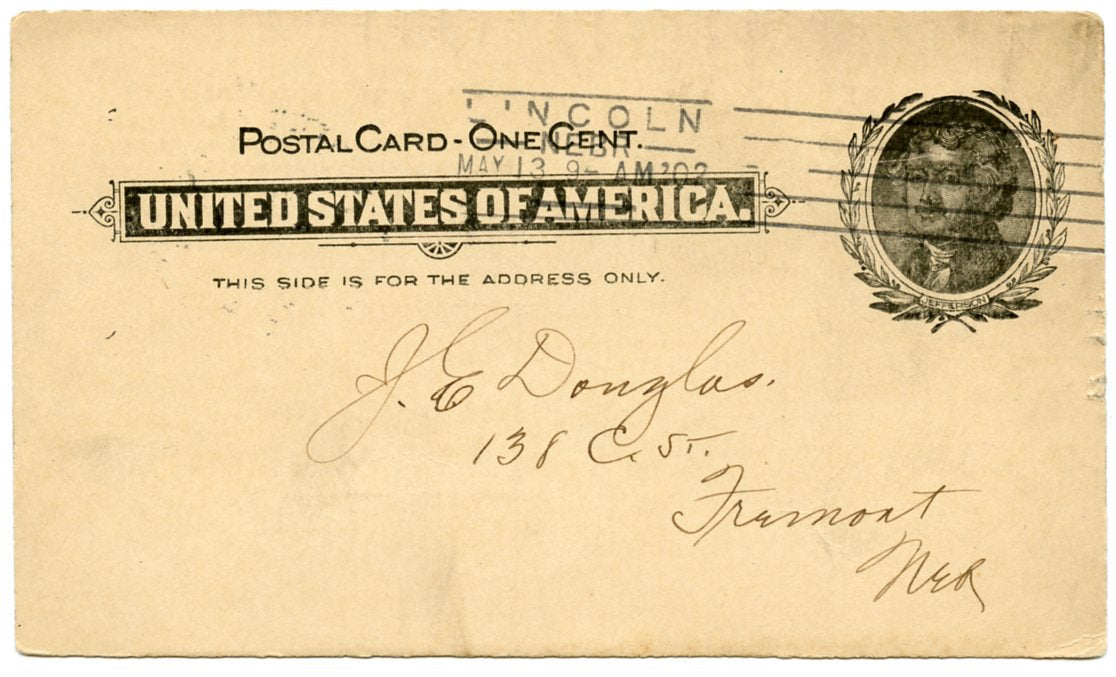 LINCOLN
NEBR
MAY 13 9- AM '02
POSTAL CARD - ONE CENT.
UNITED STATES OF AMERICA.
THIS SIDE IS FOR THE ADDRESS ONLY.
JEFFERSON
J. E Douglas.
138 C. ST.
Fremont
Neb